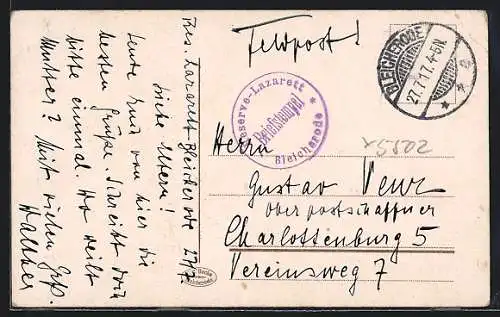 Feldpost!
BLEICHERODE
27.7.17. 4-5N.
Reserve-Lazarett
Briefstempel
Bleicherode
Herrn
Gustav
Oberpostschaffner
Charlottenburg 5
Vereinsweg 7
Res. Lazarett Bleicherode 27/7.
Liebe Eltern!
Sende Euch von hier die
besten Grüße. Schreibt doch
bitte einmal. Wo weilt
Mutter? Mit vielen Grß.
Walther